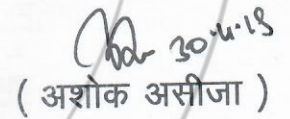 30.4.15
( अशोक असीजा )